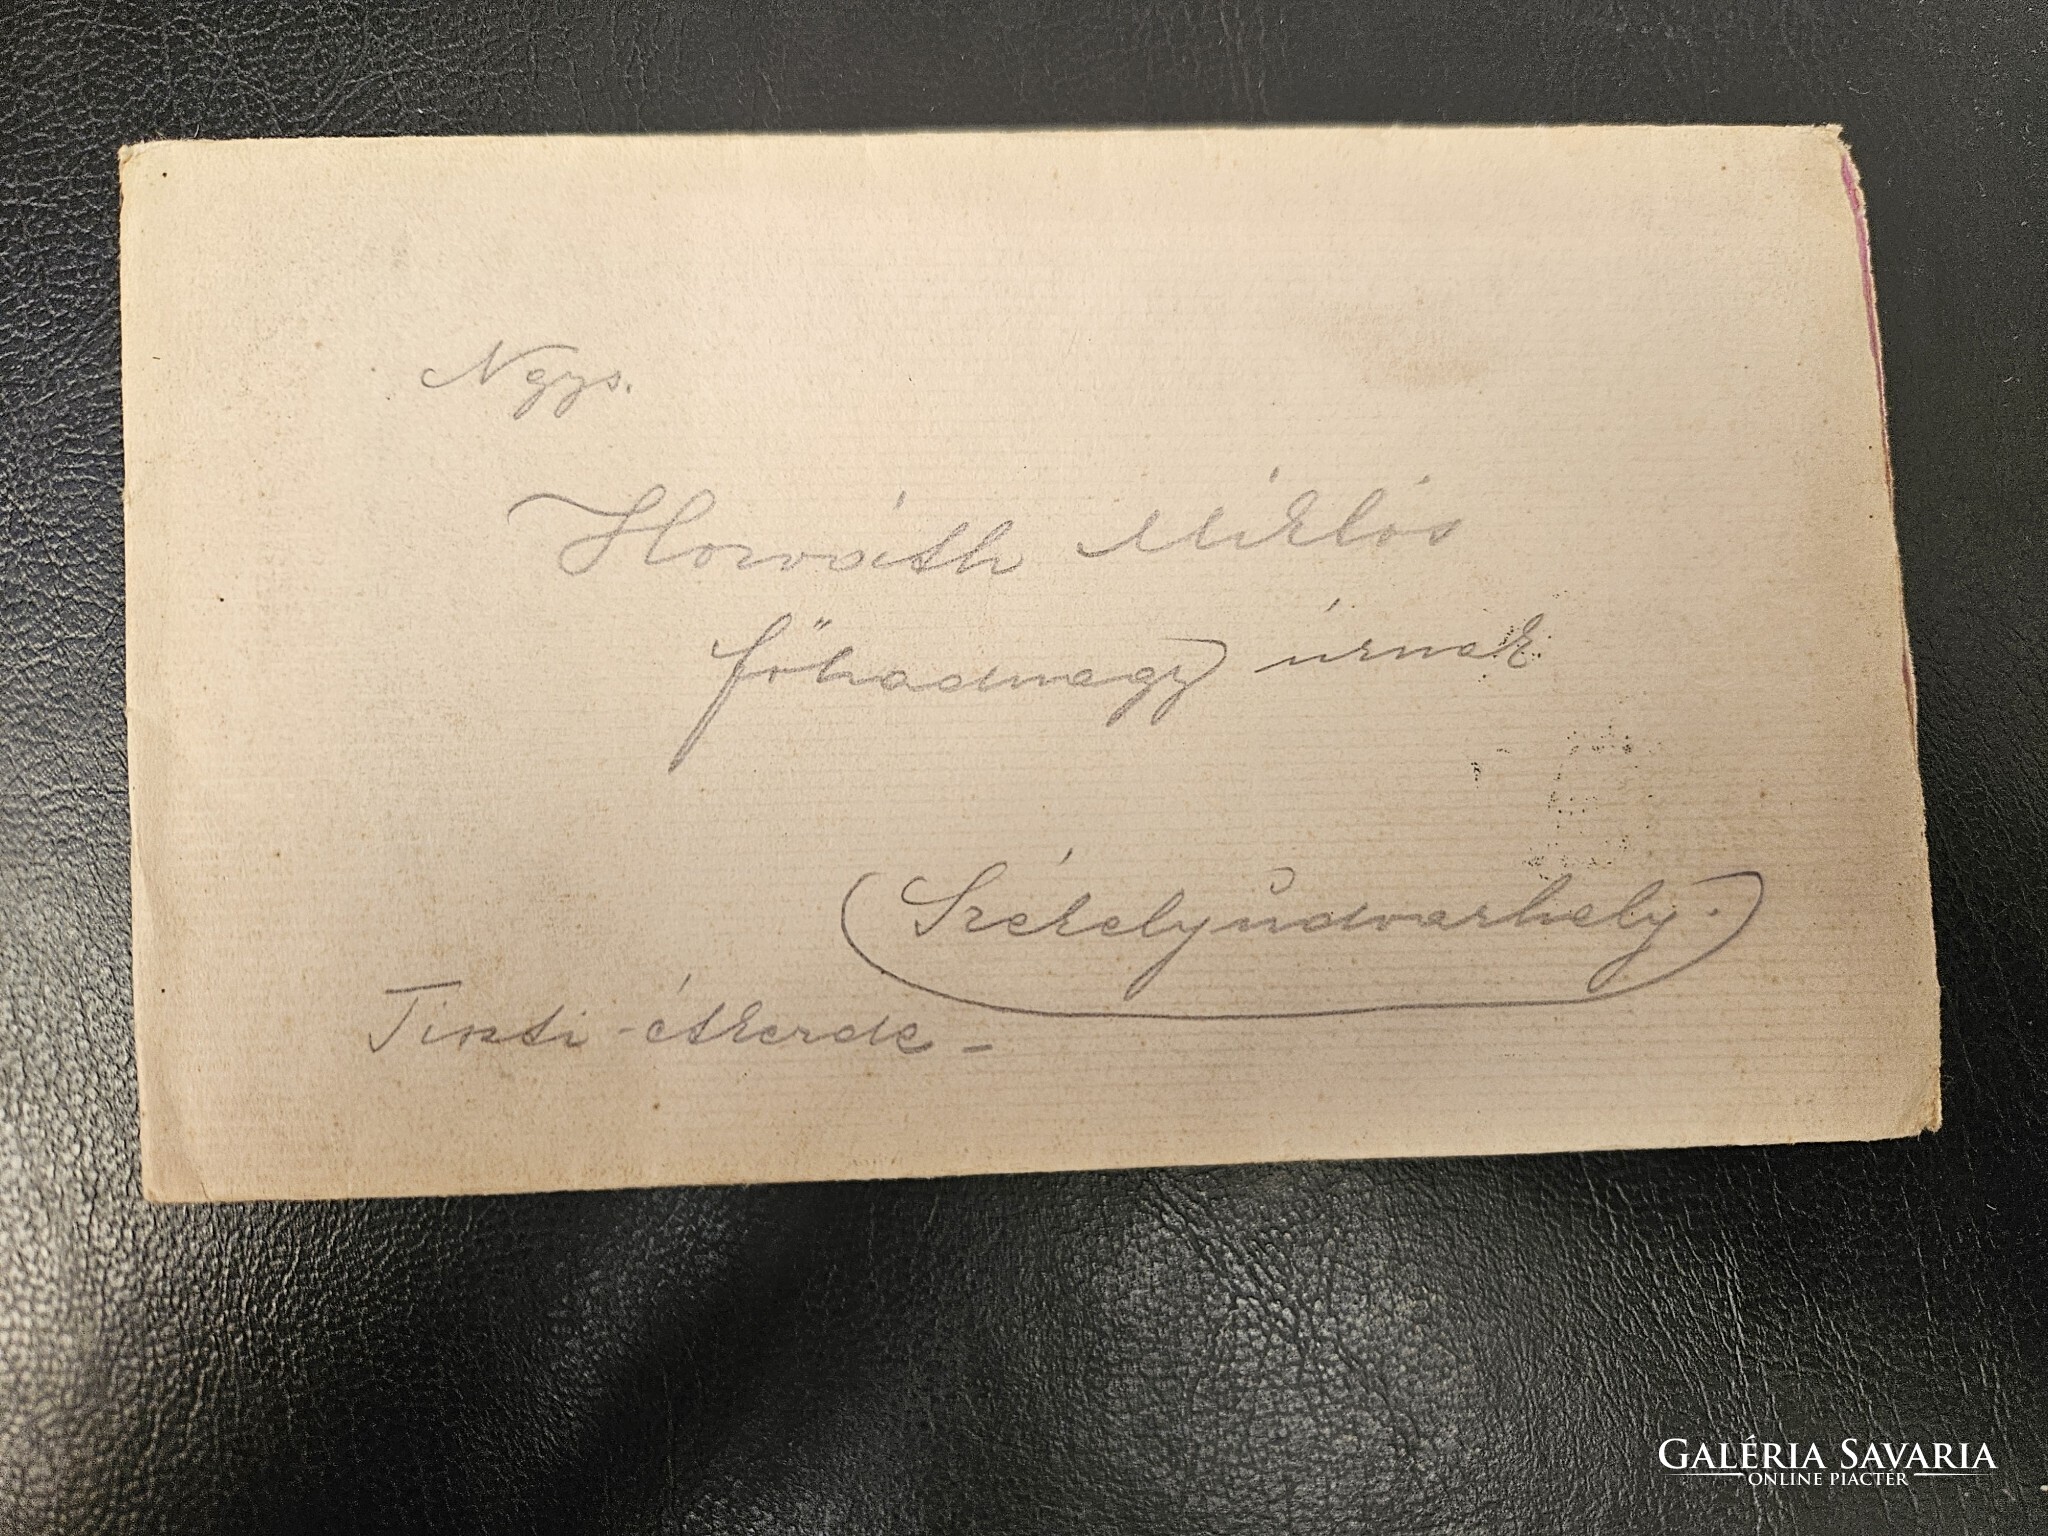 Ngys.
Horváth Miklós
főhadnagy úrnak
Székelyudvarhely.
Tiszti-étkezde-
GALÉRIA SAVARIA
ONLINE PIACTÉR